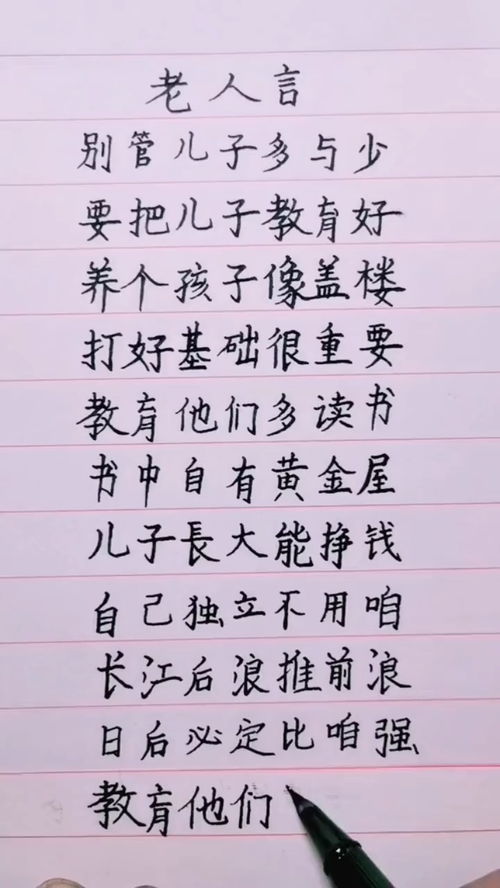 老人言
别管儿子多与少
要把儿子教育好
养个孩子像盖楼
打好基础很重要
教育他们多读书
书中自有黄金屋
儿子長大能挣钱
自己独立不用咱
长江后浪推前浪
日后必定比咱强
教育他们